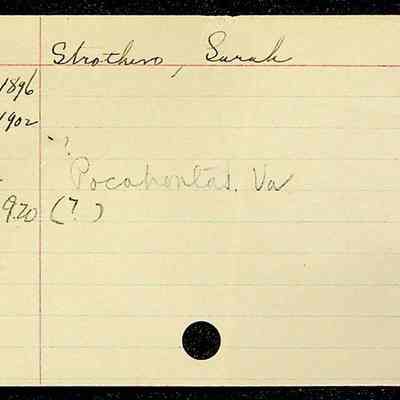 Strothers, Sarah
1896
1902
?
Pocahontas, Va
920 (?)